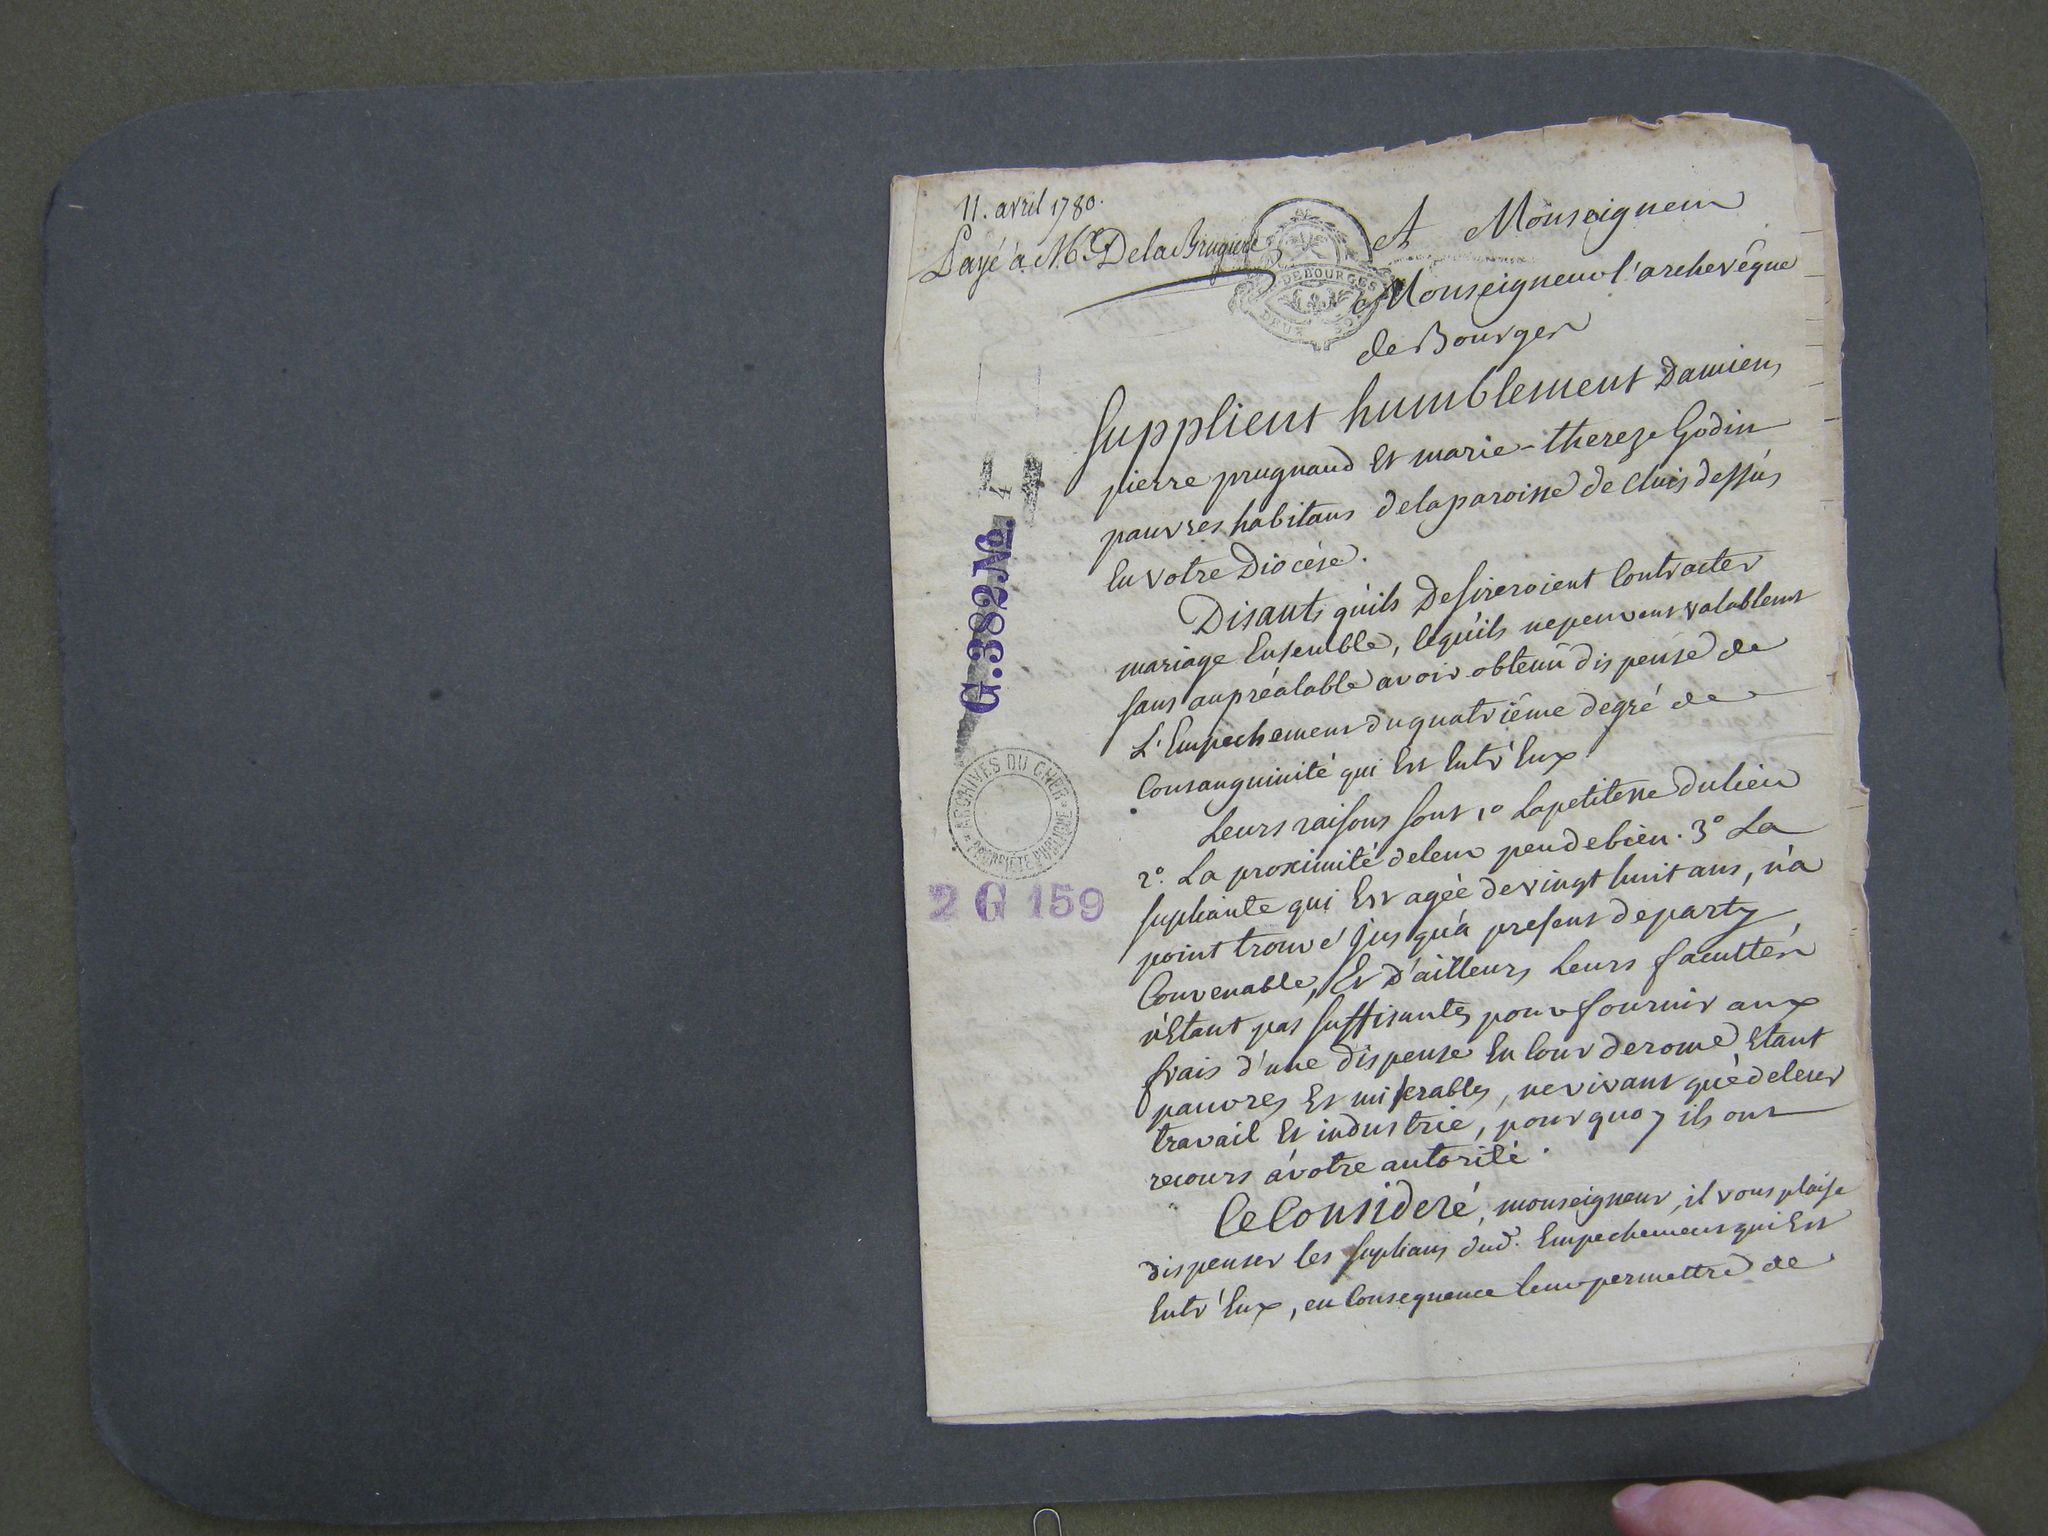 11. avril 1780.
Payé à Mr. Dela Brugiere
DE BOURGES
DEUX SOLS
A Monseigneur
Monseigneur l'archevêque
de Bourges
Supplient humblement Damien,
pierre prugnaud Et marie-thereze Godin
pauvres habitans dela paroisse de Cluis dessus
En votre Diocése.
Disants qu'ils Desireroient Contracter
mariage Ensemble, cequ'ils nepeuvent valablemt
sans aupréalable avoir obtenû dispense de
L'Empechement duquatriéme degré de
Consanguinité qui Est Entr'Eux.
Leurs raisons sont, 1º Lapetitesse dulieu
2º. La proximité deleur peudebien. 3º La
supliante qui Est agée devingt huit ans, n'a
point trouvé jusqu'à present departy
Convenable, Et D'ailleurs Leurs facultés
n'Etant pas suffisantes pour fournir aux
frais d'une dispense En Cour derome, Etant
pauvres Et miserables, nevivant que deleur
travail Et industrie, pourquoy ils ont
recours àvotre autorité.
Ce Consideré, monseigneur, il vous plaise
dispenser les suplians dud. Empechement qui Est
Entr'Eux, en Consequence leur permettre de
G. 382 No. 4
ARCHIVES DU CHER
PROPRIÉTÉ PUBLIQUE
2 G 159